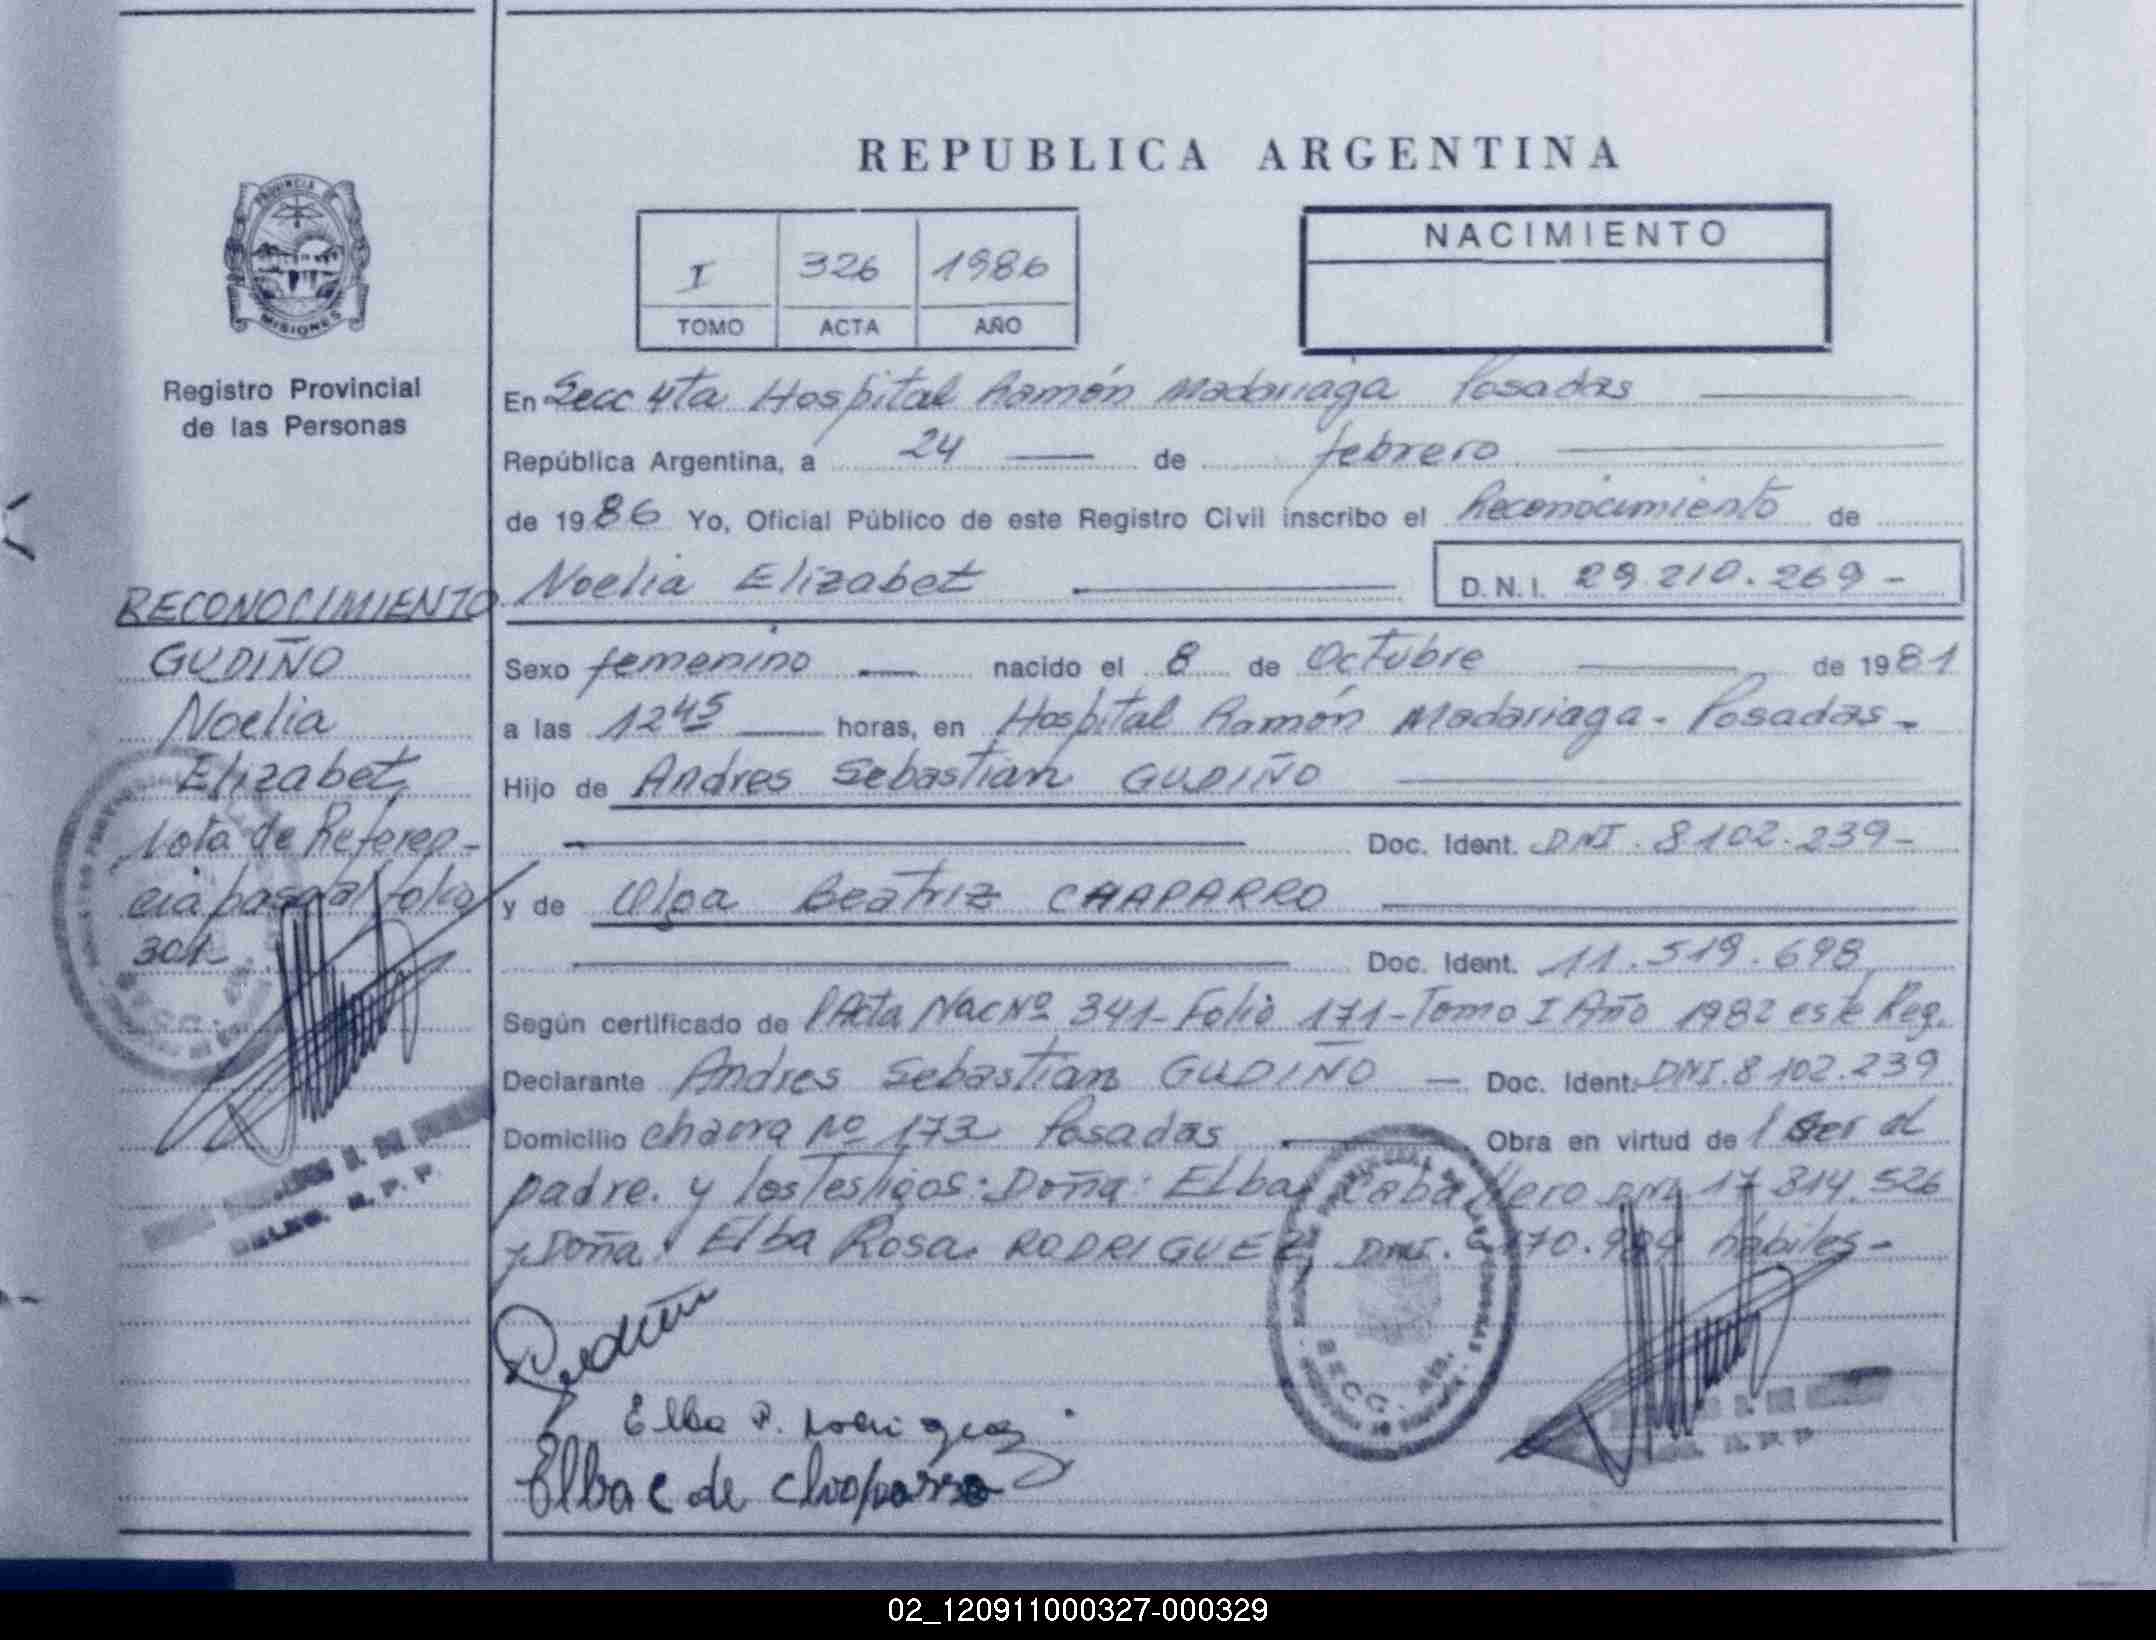 REPUBLICA ARGENTINA
PROVINCIA DE
MISIONES
Registro Provincial
de las Personas
I 326 1986
TOMO ACTA AÑO
NACIMIENTO
En Secc 4ta Hospital Ramón Madariaga Posadas
República Argentina, a 24 de febrero
de 1986 Yo, Oficial Público de este Registro Civil inscribo el Reconocimiento de
Noelia Elizabet D.N.I. 29.210.269-
Sexo femenino nacido el 8 de Octubre de 1981
a las 12 45 horas, en Hospital Ramón Madariaga - Posadas -
Hijo de Andres Sebastian GUDIÑO
Doc. Ident. DNI. 8102.239-
y de Olga Beatriz CHAPARRO
Doc. Ident. 11.519.698
Según certificado de Nac Nº 341- Folio 171- Tomo I Año 1982 este Reg.
Declarante Andres Sebastian GUDIÑO - Doc. Ident. DNI. 8102.239
Domicilio chacra Nº 173 Posadas Obra en virtud de ser el
padre. y los Testigos: Doña: Elba Caballero DNI 17 314.526
y Doña: Elba Rosa RODRIGUEZ DNI. hábiles-
Elba R. Rodriguez
Elba C de Chaparro
RECONOCIMIENTO
GUDIÑO
Noelia
Elizabet
Nota de Referen-
cia pasa al folio
SECC.
02_120911000327-000329